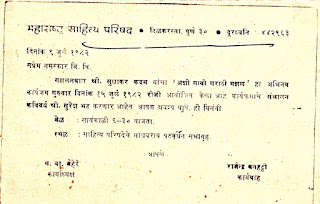 महाराष्ट्र साहित्य परिषद • टिळकरस्ता, पुणे ३० • दूरध्वनि : ४४२९६३
दिनांक ९ जुलै १९८२
सप्रेम नमस्कार वि. वि.
गझलनवाज श्री. सुधाकर कदम यांचा 'अशी गावी मराठी गझल' हा अभिनव
कार्यक्रम गुरुवार दिनांक १५ जुलै १९८२ रोजी आयोजित केला आहे. कार्यक्रमाचे संचालन
कविवर्य श्री. सुरेश भट करणार आहेत. आपण अवश्य यावे, ही विनंती
वेळ : सायंकाळी ६-३० वाजता.
स्थळ : साहित्य परिषदेचे माधवराव पटवर्धन सभागृह.
आपले
कार्याध्यक्ष
राजेन्द्र बनहट्टी
कार्यवाह